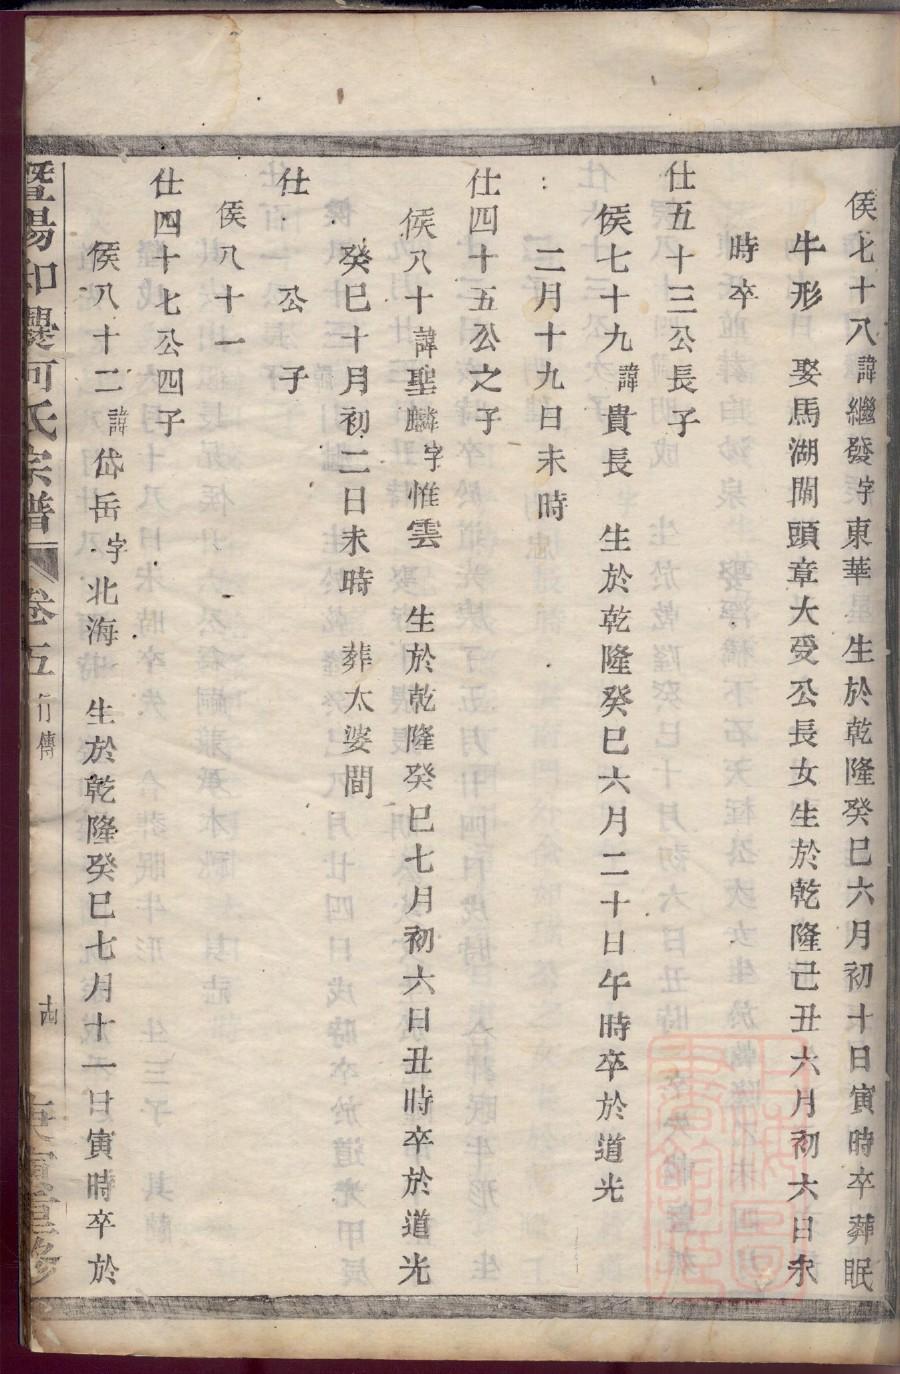 侯七十八諱繼發字東華 生於乾隆癸巳六月初十日寅時卒葬眠
牛形 娶馬湖關頭章大受公長女生於乾隆己丑六月初六日未
時卒
仕五十三公長子
侯七十九諱貴長 生於乾隆癸巳六月二十日午時卒於道光
二月十九日未時
仕四十五公之子
侯八十諱聖麟字惟雲 生於乾隆癸巳七月初六日丑時卒於道光
癸巳十月初二日未時 葬太婆間
仕 公 子
侯八十一
仕四十七公四子
侯八十二諱岱岳字北海 生於乾隆癸巳七月十一日寅時卒於
暨陽 河氏宗譜 卷五 行傳 重修